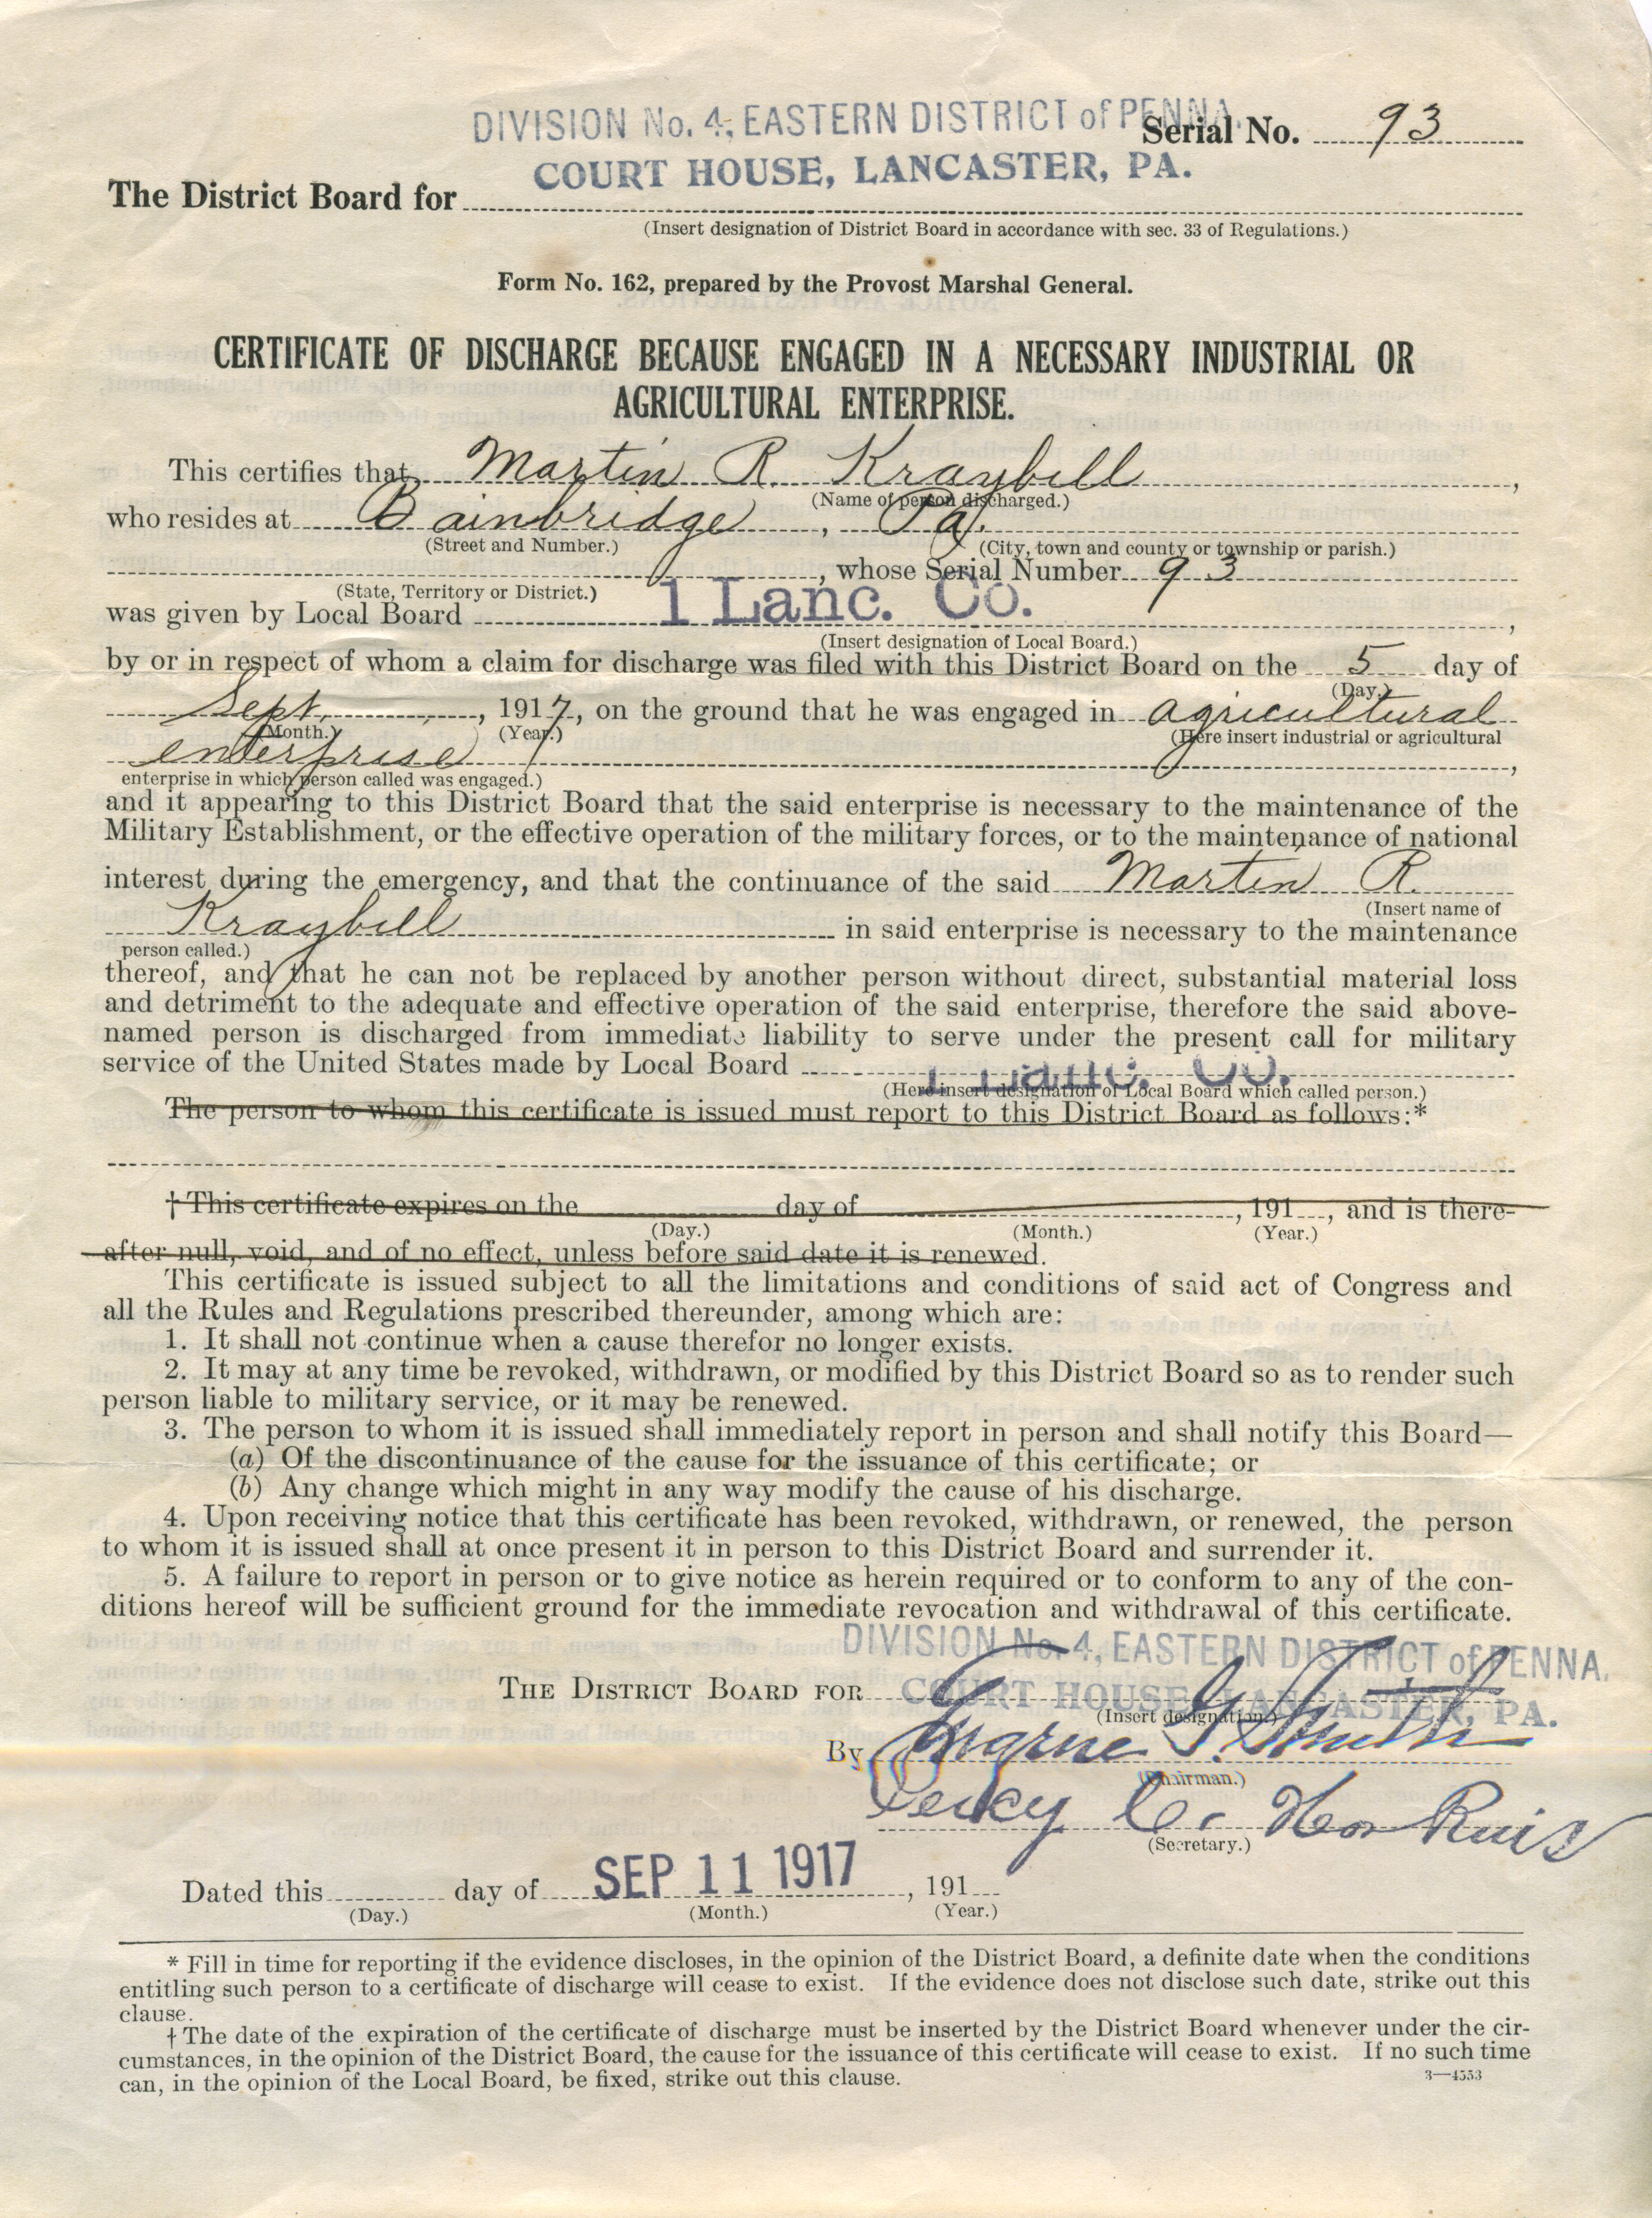 DIVISION No. 4, EASTERN DISTRICT of PENNA.
Serial No. 93
COURT HOUSE, LANCASTER, PA.
The District Board for
(Insert designation of District Board in accordance with sec. 33 of Regulations.)
Form No. 162, prepared by the Provost Marshal General.
CERTIFICATE OF DISCHARGE BECAUSE ENGAGED IN A NECESSARY INDUSTRIAL OR
AGRICULTURAL ENTERPRISE.
This certifies that Martin R. Kraybill,
(Name of person discharged.)
who resides at Bainbridge, Pa.
(Street and Number.) (City, town and county or township or parish.)
, whose Serial Number 93
(State, Territory or District.)
was given by Local Board 1 Lanc. Co.,
(Insert designation of Local Board.)
by or in respect of whom a claim for discharge was filed with this District Board on the 5 day of
(Day.)
Sept., 1917, on the ground that he was engaged in agricultural
(Month.) (Year.) (Here insert industrial or agricultural
enterprise,
enterprise in which person called was engaged.)
and it appearing to this District Board that the said enterprise is necessary to the maintenance of the
Military Establishment, or the effective operation of the military forces, or to the maintenance of national
interest during the emergency, and that the continuance of the said Martin R.
(Insert name of
Kraybill in said enterprise is necessary to the maintenance
person called.)
thereof, and that he can not be replaced by another person without direct, substantial material loss
and detriment to the adequate and effective operation of the said enterprise, therefore the said above-
named person is discharged from immediate liability to serve under the present call for military
service of the United States made by Local Board 1 Lanc. Co.
(Here insert designation of Local Board which called person.)
The person to whom this certificate is issued must report to this District Board as follows:*
† This certificate expires on the day of , 191 , and is there-
(Day.) (Month.) (Year.)
after null, void, and of no effect, unless before said date it is renewed.
This certificate is issued subject to all the limitations and conditions of said act of Congress and
all the Rules and Regulations prescribed thereunder, among which are:
1. It shall not continue when a cause therefor no longer exists.
2. It may at any time be revoked, withdrawn, or modified by this District Board so as to render such
person liable to military service, or it may be renewed.
3. The person to whom it is issued shall immediately report in person and shall notify this Board—
(a) Of the discontinuance of the cause for the issuance of this certificate; or
(b) Any change which might in any way modify the cause of his discharge.
4. Upon receiving notice that this certificate has been revoked, withdrawn, or renewed, the person
to whom it is issued shall at once present it in person to this District Board and surrender it.
5. A failure to report in person or to give notice as herein required or to conform to any of the con-
ditions hereof will be sufficient ground for the immediate revocation and withdrawal of this certificate.
DIVISION No. 4, EASTERN DISTRICT of PENNA.
THE DISTRICT BOARD FOR COURT HOUSE, LANCASTER, PA.
(Insert designation)
By G. Smith
(Chairman.)
Percy C.
(Secretary.)
Dated this day of SEP 11 1917, 191
(Day.) (Month.) (Year.)
* Fill in time for reporting if the evidence discloses, in the opinion of the District Board, a definite date when the conditions
entitling such person to a certificate of discharge will cease to exist. If the evidence does not disclose such date, strike out this
clause.
† The date of the expiration of the certificate of discharge must be inserted by the District Board whenever under the cir-
cumstances, in the opinion of the District Board, the cause for the issuance of this certificate will cease to exist. If no such time
can, in the opinion of the Local Board, be fixed, strike out this clause.
3—4553